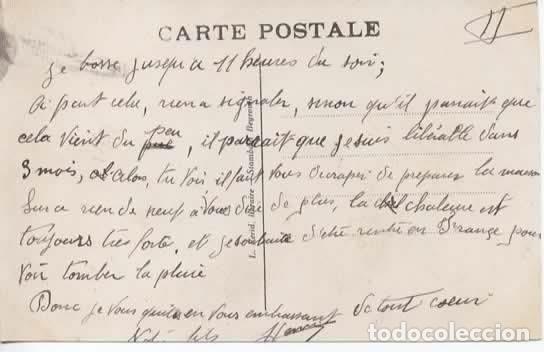 CARTE POSTALE
II
je bosse jusqu'a 11 heures du soir;
A part cela, rien a signaler, sinon qu'il parait que
cela vient du peu, il parait que je suis libérable dans
3 mois, alors, tu vois, il faut vous de préparer la maison
rien de neuf à vous dire de plus, la chaleur est
toujours très forte, et je souhaite d'être rentré en France pour
voir tomber la pluie
Donc je vous quitte en vous embrassant de tout coeur
fils